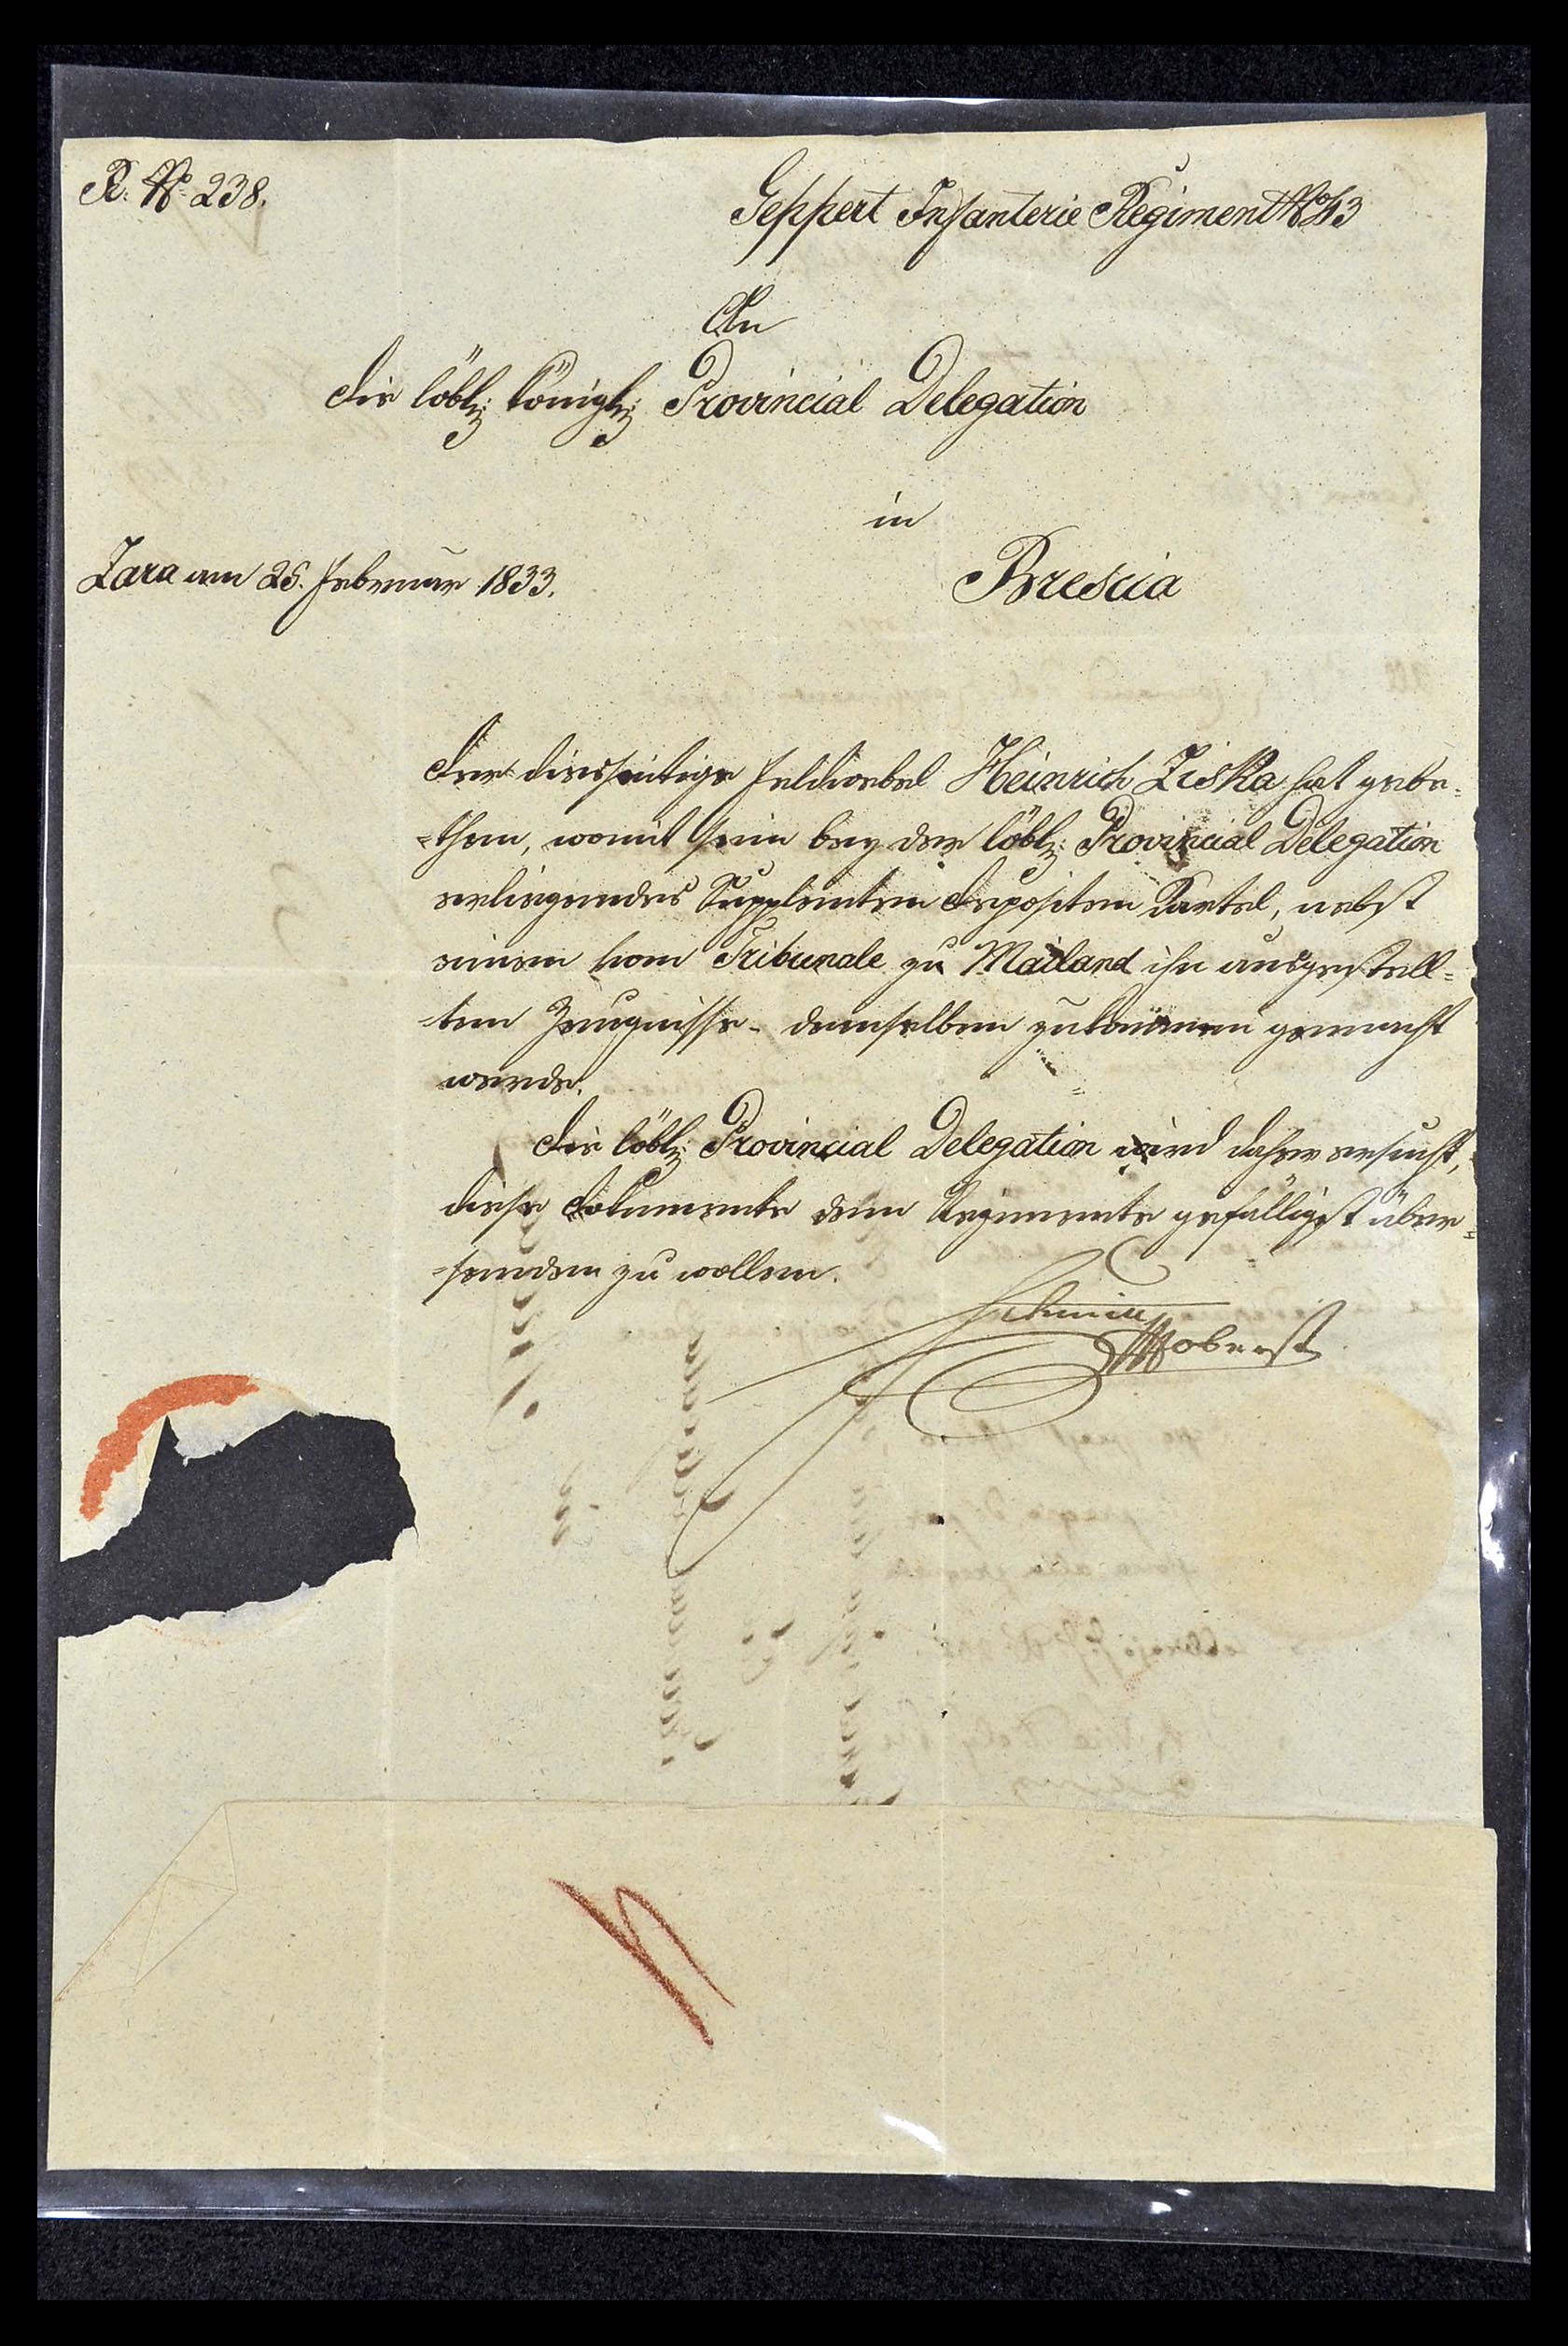 R. No 238.
Geppert Infanterie Regiment No 43
An
die löbl: königl: Provincial Delegation
in
Brescia
Zara am 25. Februar 1833.
Der diesseitige Feldwebel Heinrich Ziska hat gebe-
-then, womit sein bey der löbl: Provincial Delegation
erliegendes Supplenten Depositen Cartel, nebst
einem vom Tribunale zu Mailand ihn ausgestell-
-ten Zeugnisse - demselben zukommen gemacht
werde.
Die löbl: Provincial Delegation wird daher ersucht,
diese Dokumente dem Regimente gefälligst über-
-senden zu wollen.
Oberst